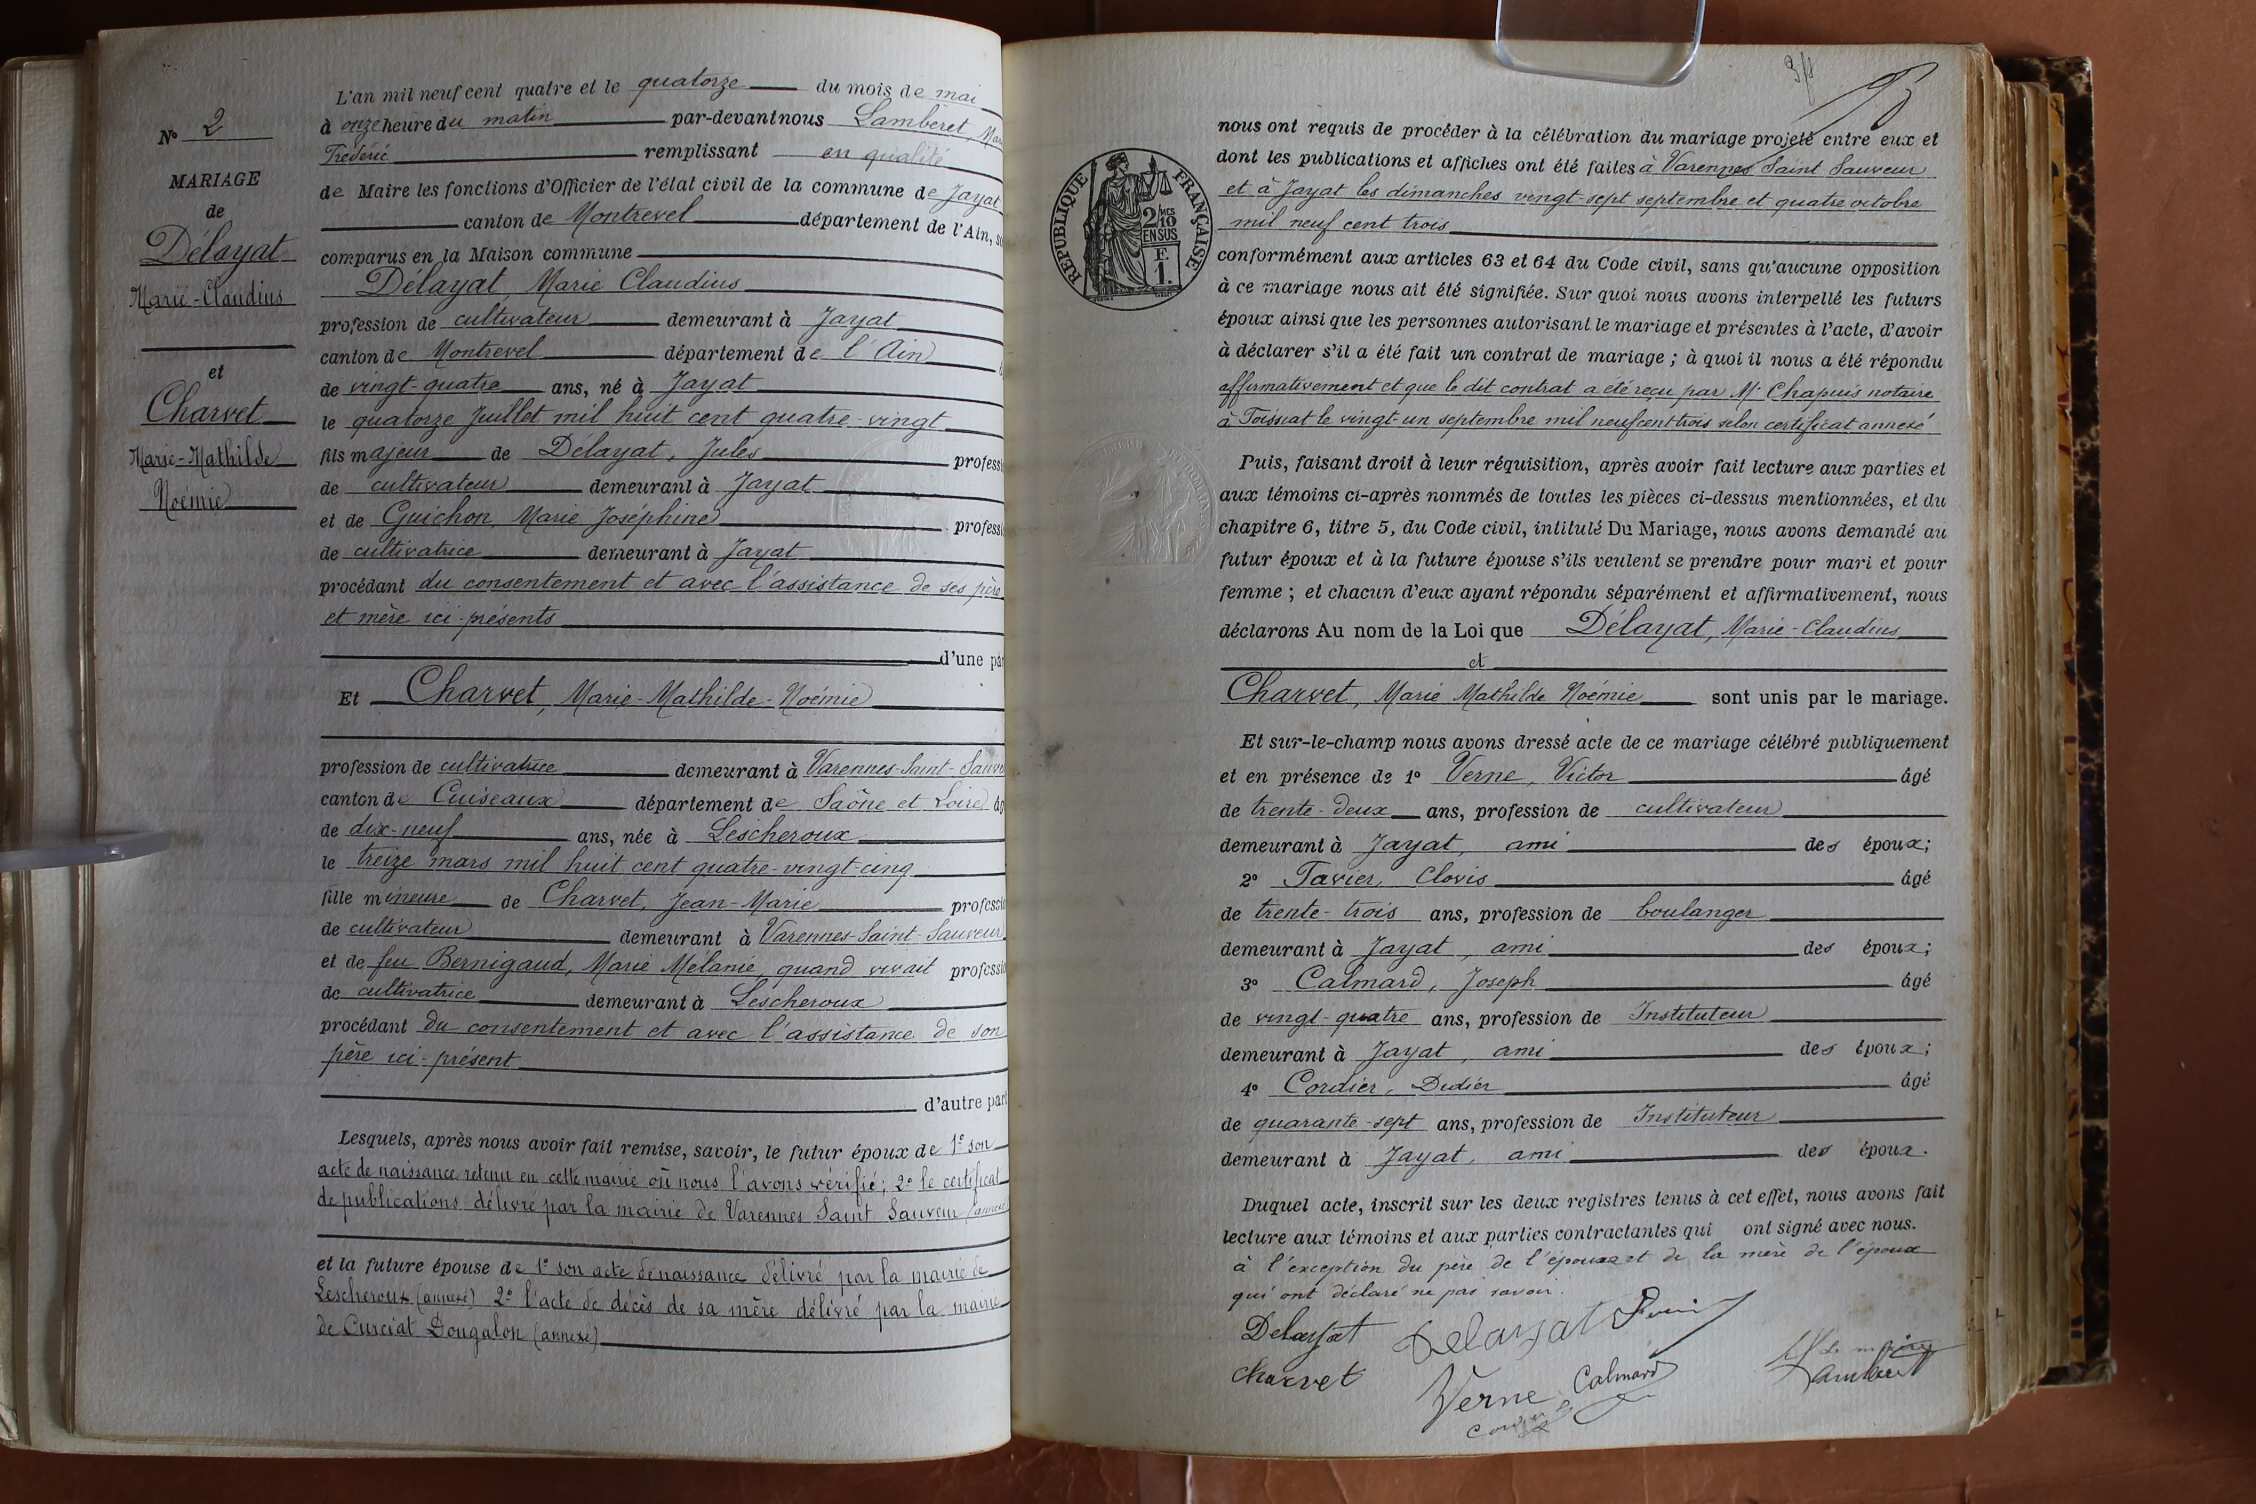 N° 2
MARIAGE
de
Délayat
Marie-Claudius
et
Charvet
Marie-Mathilde
Noémie
L'an mil neuf cent quatre et le quatorze du mois de mai
à onze heure du matin par-devant nous Lambéret,
Frédéric remplissant en qualité
de Maire les fonctions d'Officier de l'état civil de la commune de Jayat
canton de Montrevel département de l'Ain,
comparus en la Maison commune
Délayat, Marie Claudius
profession de cultivateur demeurant à Jayat
canton de Montrevel département de l'Ain
de vingt-quatre ans, né à Jayat
le quatorze Juillet mil huit cent quatre-vingt
fils majeur de Délayat, Jules professi
de cultivateur demeurant à Jayat
et de Guichon, Marie Joséphine professi
de cultivatrice demeurant à Jayat
procédant du consentement et avec l'assistance de ses père
et mère ici-présents
d'une par
Et Charvet, Marie-Mathilde-Noémie
profession de cultivatrice demeurant à Varennes-Saint-Sauve
canton de Cuiseaux département de Saône et Loire âg
de dix-neuf ans, née à Lescheroux
le treize mars mil huit cent quatre-vingt-cinq
fille mineure de Charvet, Jean-Marie professio
de cultivateur demeurant à Varennes-Saint-Sauveur
et de feu Bernigaud, Marie Melanie, quand vivait professio
de cultivatrice demeurant à Lescheroux
procédant du consentement et avec l'assistance de son
père ici-présent
d'autre part
Lesquels, après nous avoir fait remise, savoir, le futur époux de 1° son
acte de naissance retenu en cette mairie où nous l'avons vérifié; 2° le certificat
de publications délivré par la mairie de Varennes Saint Sauveur (annexé
et la future épouse de 1° son acte de naissance délivré par la mairie de
Lescheroux (annexé) 2° l'acte de décès de sa mère délivré par la mairie
de Curciat Dongalon (annexé)
RÉPUBLIQUE FRANÇAISE
2/10 MES
EN SUS
F.
1.
nous ont requis de procéder à la célébration du mariage projeté entre eux et
dont les publications et affiches ont été faites à Varennes Saint Sauveur
et à Jayat les dimanches vingt-sept septembre et quatre octobre
mil neuf cent trois
conformément aux articles 63 et 64 du Code civil, sans qu'aucune opposition
à ce mariage nous ait été signifiée. Sur quoi nous avons interpellé les futurs
époux ainsi que les personnes autorisant le mariage et présentes à l'acte, d'avoir
à déclarer s'il a été fait un contrat de mariage; à quoi il nous a été répondu
affirmativement et que le dit contrat a été reçu par Me Chapuis notaire
à Foissiat le vingt-un septembre mil neuf cent trois selon certificat annexé
Puis, faisant droit à leur réquisition, après avoir fait lecture aux parties et
aux témoins ci-après nommés de toutes les pièces ci-dessus mentionnées, et du
chapitre 6, titre 5, du Code civil, intitulé Du Mariage, nous avons demandé au
futur époux et à la future épouse s'ils veulent se prendre pour mari et pour
femme; et chacun d'eux ayant répondu séparément et affirmativement, nous
déclarons Au nom de la Loi que Délayat, Marie-Claudius
et
Charvet, Marie Mathilde Noémie sont unis par le mariage.
Et sur-le-champ nous avons dressé acte de ce mariage célébré publiquement
et en présence de 1° Verne, Victor âgé
de trente-deux ans, profession de cultivateur
demeurant à Jayat, ami des époux;
2° Tavier, Clovis âgé
de trente-trois ans, profession de boulanger
demeurant à Jayat, ami des époux;
3° Calmard, Joseph âgé
de vingt-quatre ans, profession de Instituteur
demeurant à Jayat, ami des époux;
4° Cordier, Didier âgé
de quarante-sept ans, profession de Instituteur
demeurant à Jayat, ami des époux.
Duquel acte, inscrit sur les deux registres tenus à cet effet, nous avons fait
lecture aux témoins et aux parties contractantes qui ont signé avec nous.
à l'exception du père de l'épouse et de la mère de l'époux
qui ont déclaré ne pas savoir.
Delayat Delayat
Charvet Verne Calmard
Le maire
Lamberet